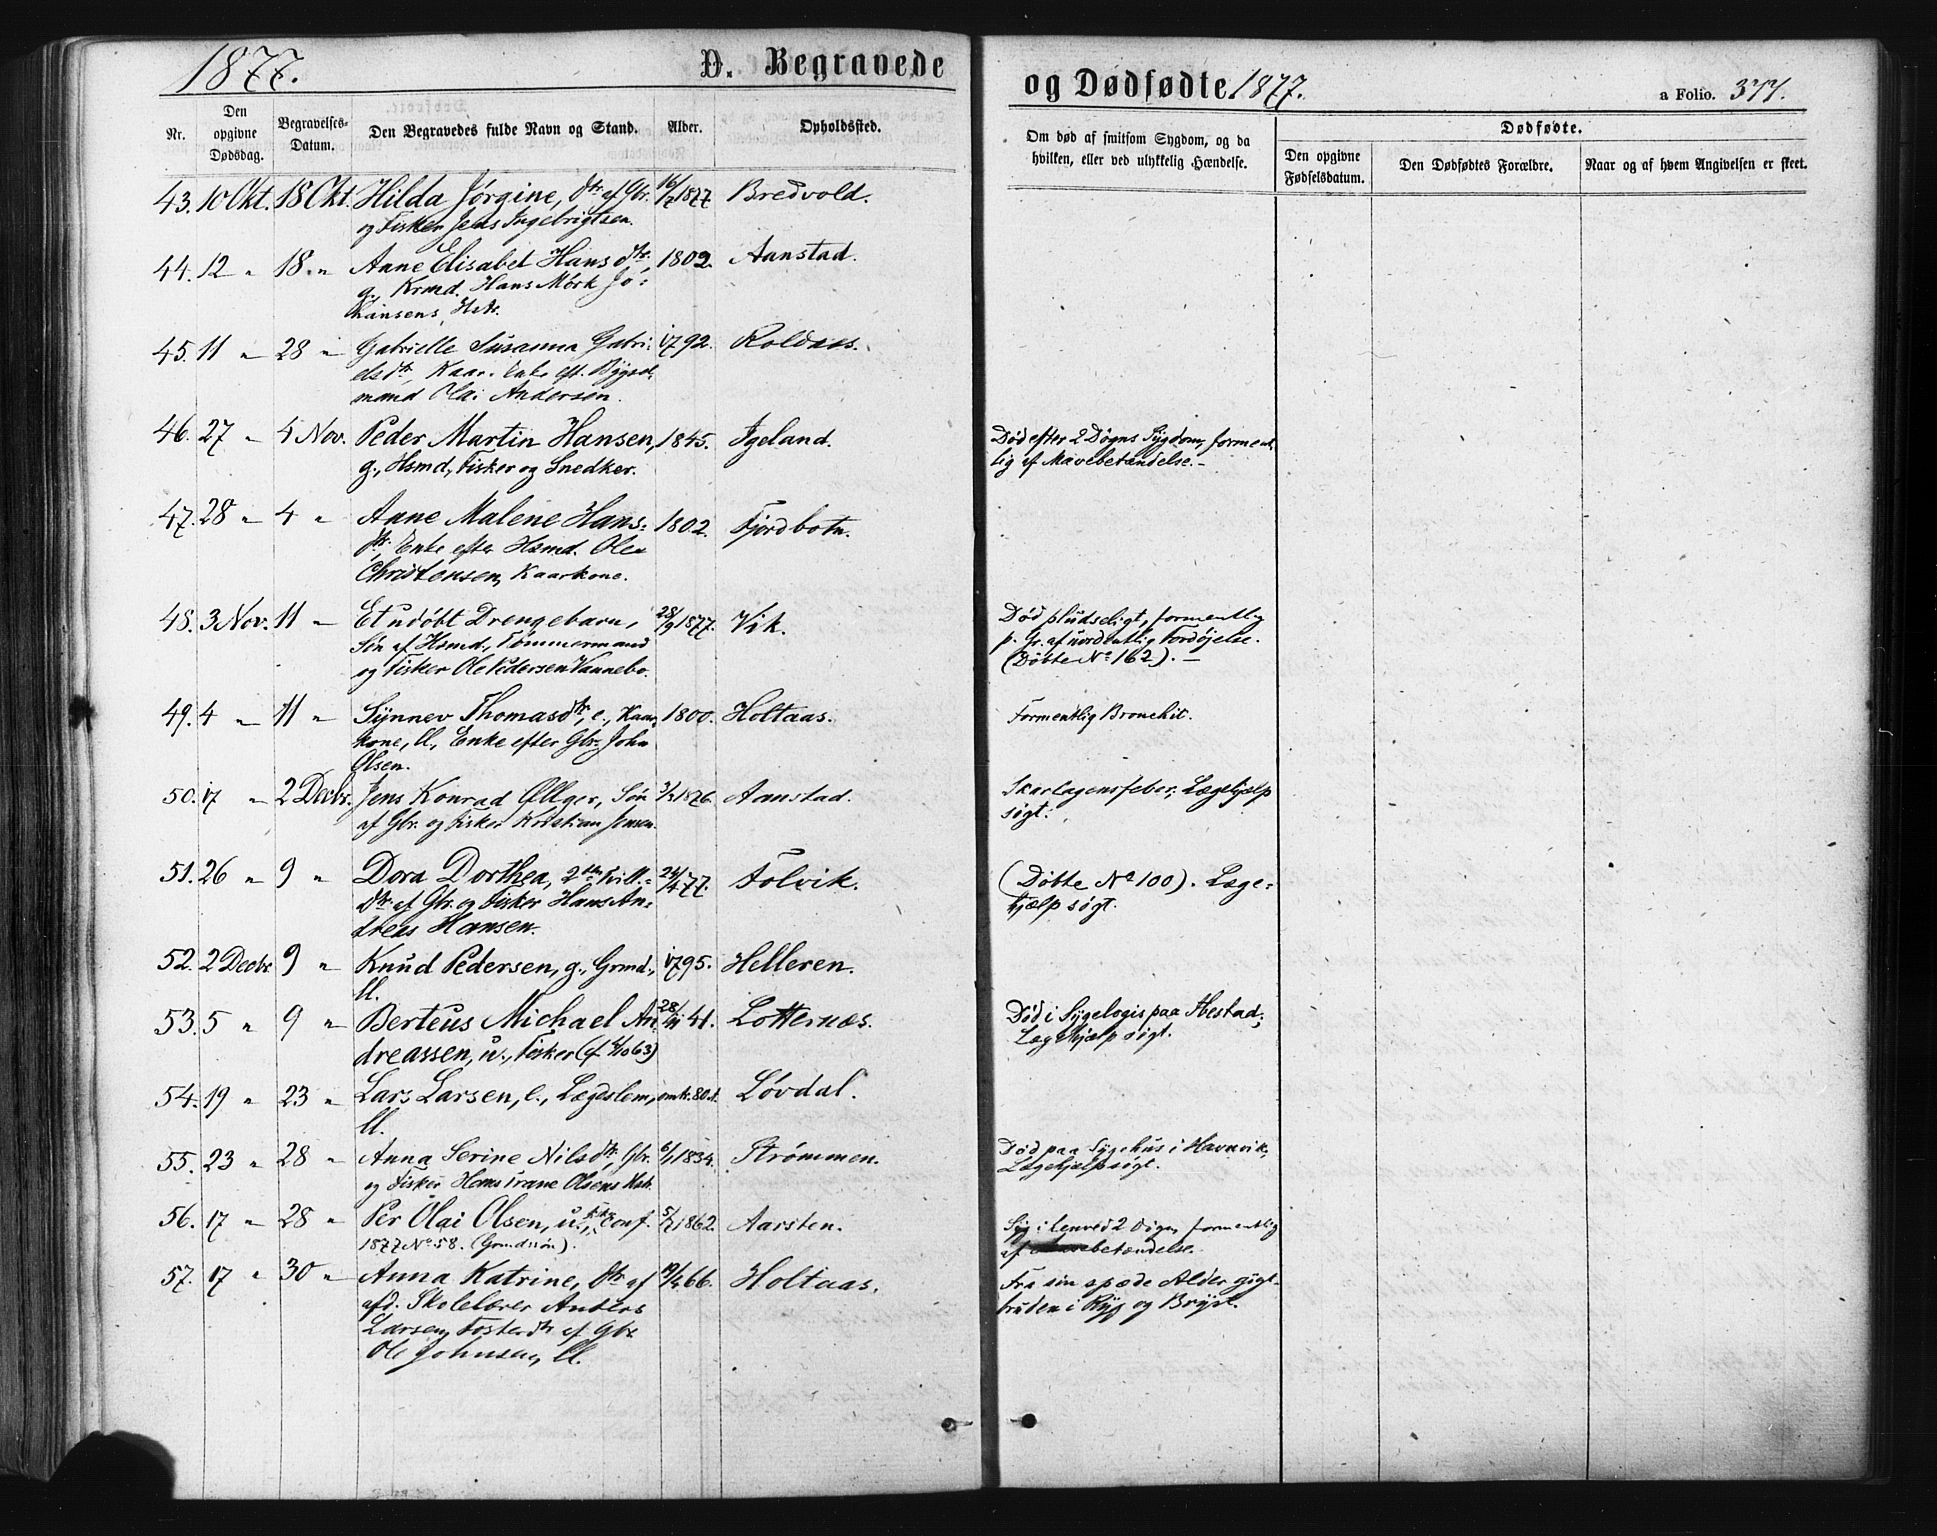 1877. D. Begravede
og Dødfødte 1877. a Folio. 377.
Nr.
Den opgivne Dødsdag.
Begravelses-Datum.
Den Begravedes fulde Navn og Stand.
Alder.
Opholdssted.
Om død af smitsom Sygdom, og da
hvilken, eller ved ulykkelig Hændelse.
Dødfødte.
Den opgivne Fødselsdatum.
Den Dødfødtes Forældre.
Naar og af hvem Angivelsen er skeet.
43. 10 Okt. 18 Okt. Hilda Jørgine, Dtr. af Gbr. 16/7 1877. Bredvold.
og Fisker Jens Ingebrigtsen.
44. 12 " 18 " Anne Elisabet Hansdtr. 1802. Aanstad.
g. Krmd. Hans Mørk Jo-
hansens Hstr.
45. 11 " 28 " Gabrielle Susanna Gabri- 1792. Roldaas.
elsdtr, Kaar. Enke eft. Bygsel
mand Olai Andersen.
46. 27 " 4 Nov. Peder Martin Hansen, 1845. Igeland. Død efter 2 Døgns Sygdom, forment-
g., Hsmd, Fisker og Snedker. lig af Mavebetændelse. -
47. 28 " 4 " Anne Malene Hans- 1802. Fjordbotn.
dtr. Enke efter Hsmd. Ole
Christensen, Kaarkone.
48. 3 Nov. 11 " Et udøbt Drengebarn, 28/9 1877. Vik. Død pludseligt, formentlig
Søn af Hsmd., Tømmermand p. Gr. af uordentlig Fordøjelse.
og Fisker Ole Pedersen Vannebo. (Døbte No 162). -
49. 4 " 11 " Synnev Thomasdtr, e., Kaar- 1800. Holtaas. Formentlig Bronchit.
kone, ll., Enke efter Gbr. John
Olsen.
50. 17 " 2 Decbr. Jens Konrad Øllger, Søn 3/3 1876. Aanstad. Skarlagensfeber; Lægehjælp
af Gbr. og Fisker Kristian Jensen. søgt.
51. 26 " 9 " Dora Dorthea, 2den Tvill.- 24/4 77. Folvik. (Døbte No 100). Læge-
Dtr. af Gbr. og Fisker Hans An- hjælp søgt.
dreas Hansen.
52. 2 Decbr 9 " Knud Pedersen, g., Grmd., 1795. Helleren.
ll.
53. 5 " 9 " Berteus Michael An- 28/11 41. Lotternæs. Død i Sygelogis paa Hestad;
dreassen, u., Fisker (cf 4/10 63) Lægehjælp søgt.
54. 19 " 23 " Lars Larsen, e., Lægdslem, omtr. 80 A. Løvdal.
ll.
55. 23 " 28 " Anna Serine Nilsdtr, Gbr. 6/1 1834. Strømmen. Død paa Sygehus i Havnvik;
og Fisker Hans Trane Olsens Hstr. Lægehjælp søgt.
56. 17 " 28 " Per Olai Olsen, u., Fisker, conf. 5/7 1862. Aarsten. Syg i henved 2 Døgn, formentlig
1877 No 58. (Grmdssøn). af Mavebetændelse.
57. 17 " 30 " Anna Katrine, Dtr. af 19/4 66. Holtaas. Fra sin spæde Alder gigt-
afd. Skolelærer Anders bruden i Ryg og Bryst.
Larsen, Fosterdtr af Gbr.
Ole Johnsen, ll.